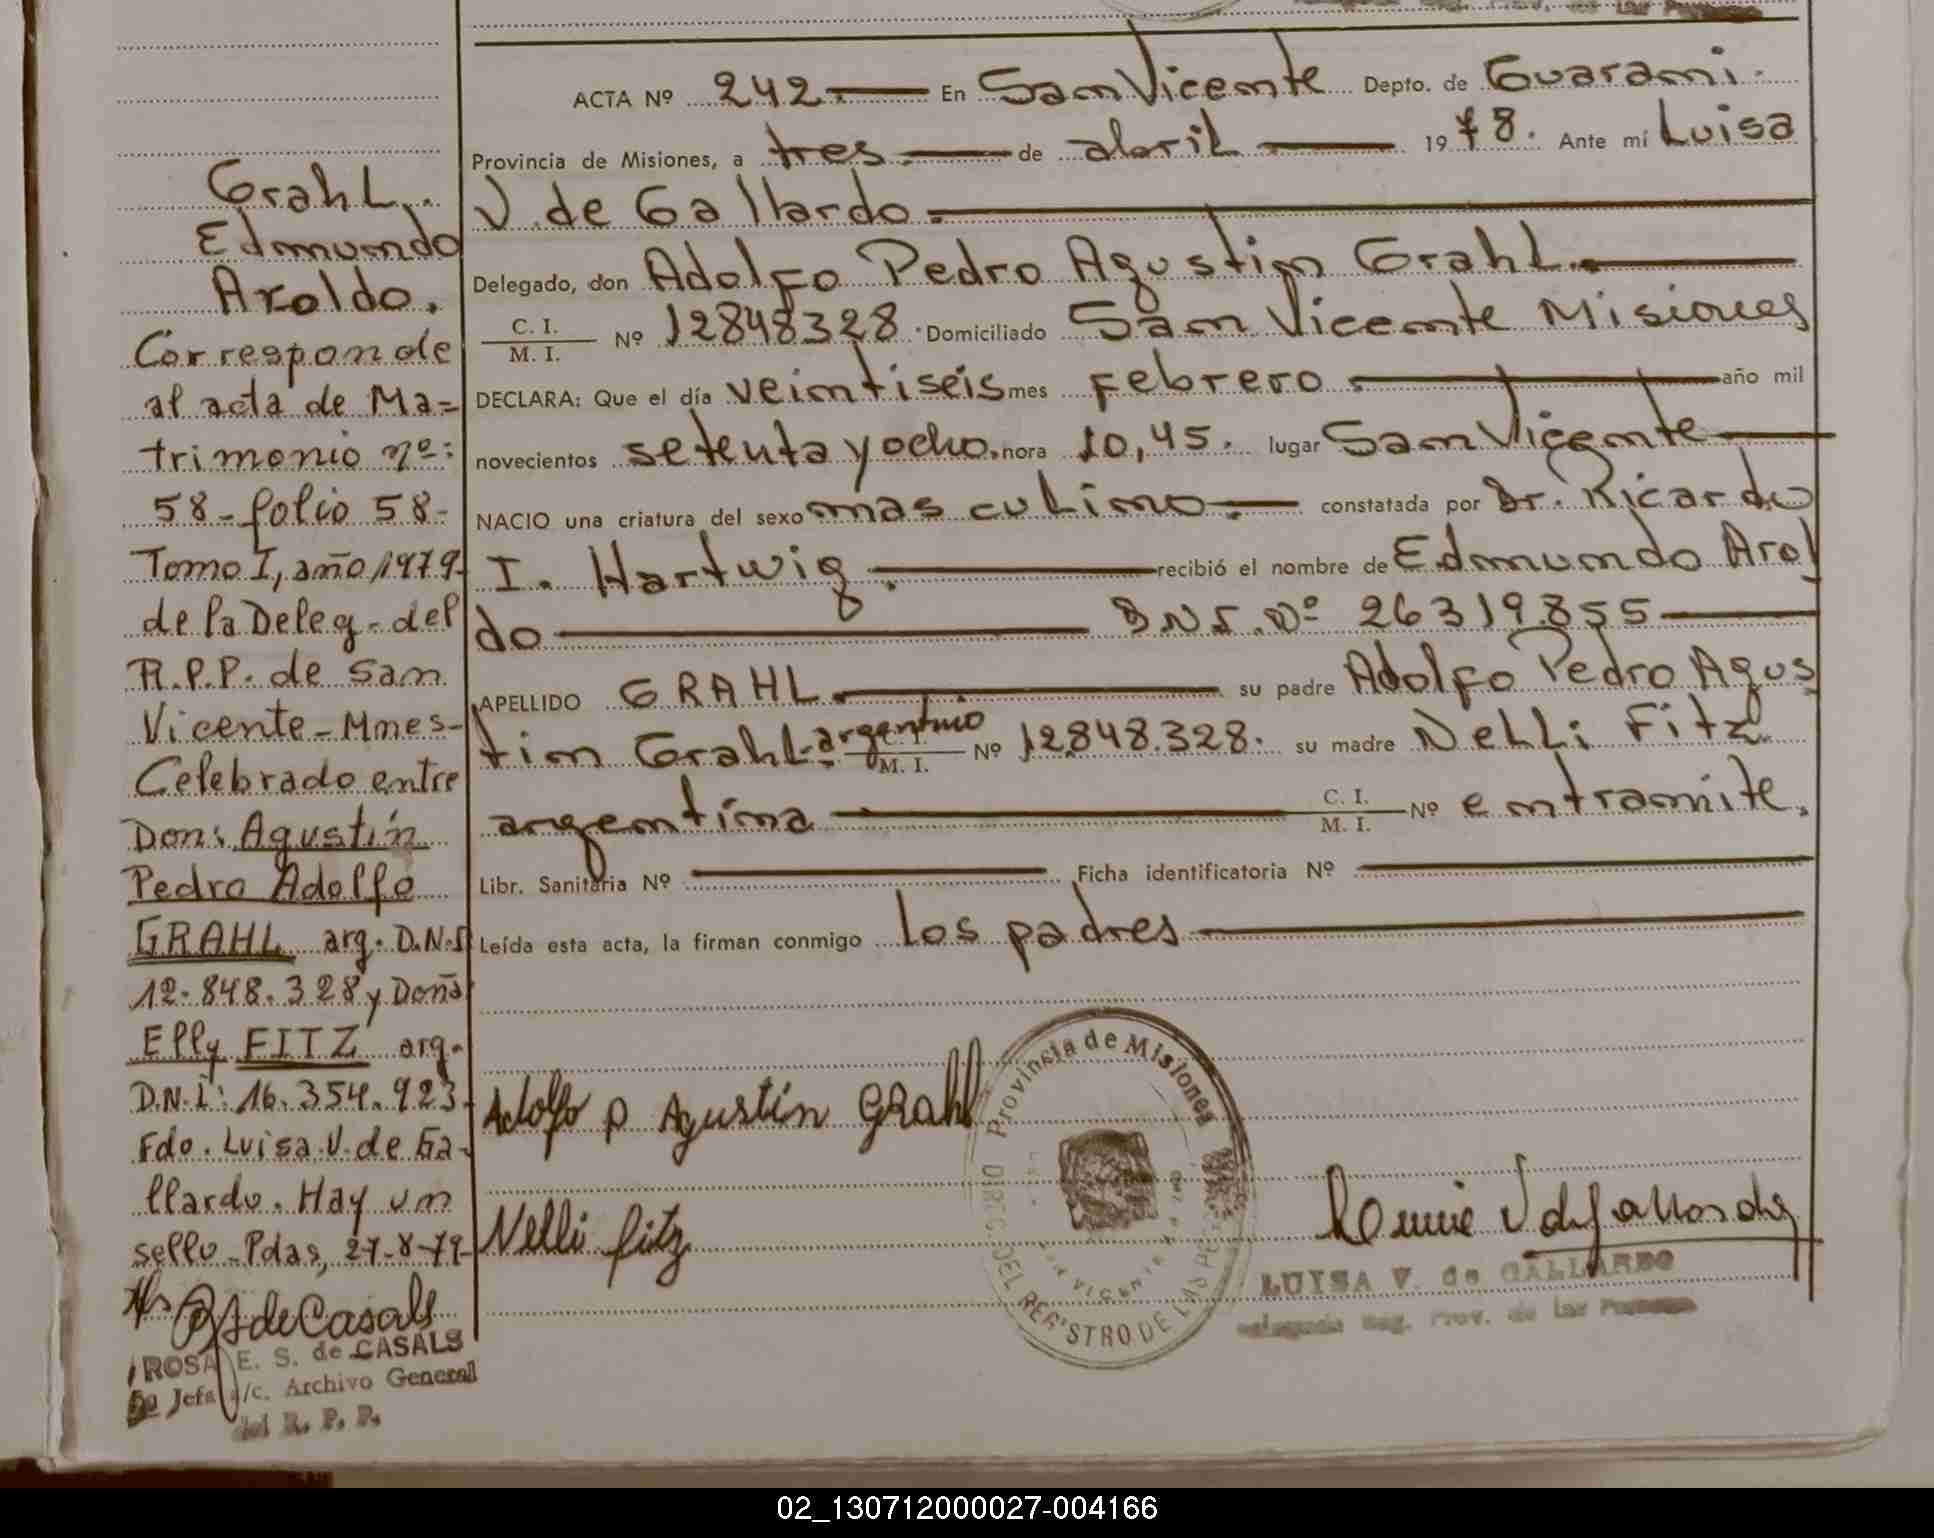 Grahl.
Edmundo
Aroldo.
Corresponde
al acta de Ma=
trimonio nº:
58-folio 58-
Tomo I, año 1979-
de la Deleg. del
R.P.P. de San
Vicente-Mnes-
Celebrado entre
Don: Agustín
Pedro Adolfo
GRAHL arg. D.N.I
12.848.328 y Doña
Elly FITZ arg.
D.N.I: 16.354.923-
Fdo. Luisa V. de Ga-
llardo. Hay un
sello-Pdas, 27-8-79-
ROSA E. S. de CASALS
Jefa a/c. Archivo General
del R. P. P.
ACTA Nº 242.— En San Vicente Depto. de Guarani.
Provincia de Misiones, a tres.— de abril — 1978. Ante mí Luisa
V. de Gallardo.—
Delegado, don Adolfo Pedro Agustin Grahl.—
C. I.
M. I. Nº 12848328. Domiciliado San Vicente Misiones
DECLARA: Que el día veintiséis mes Febrero.— año mil
novecientos setenta y ocho. hora 10,45. lugar San Vicente—
NACIO una criatura del sexo masculino.— constatada por Dr. Ricardo
I. Hartwig.— recibió el nombre de Edmundo Arol
do— D.N.I. Nº 26319.855—
APELLIDO GRAHL.— su padre Adolfo Pedro Agus
tin Grahl-argentino C. I. M. I. Nº 12.848.328. su madre Nelli Fitz
argentina— C. I. M. I. Nº en tramite.
Libr. Sanitaria Nº — Ficha identificatoria Nº —
Leída esta acta, la firman conmigo los padres—
Adolfo P Agustín GRahl
Nelli fitz
Provincia de Misiones
DIREC. DEL REGISTRO DE LAS PE
LUISA V. de GALLARDO
Delegada Reg. Prov. de las Personas
02_130712000027-004166